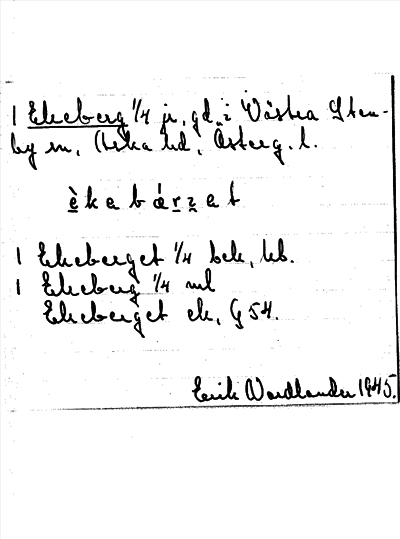 1 Ekeberg 1/4 jr, gd i Västra Sten-
by sn, Aska hd, Österg. l.
è k a b á r z a t
1 Ekeberget 1/4 bek, hb.
1 Ekeberg 1/4 ml
Ekeberget ek, G 54.
Erik Wordlander 1945.